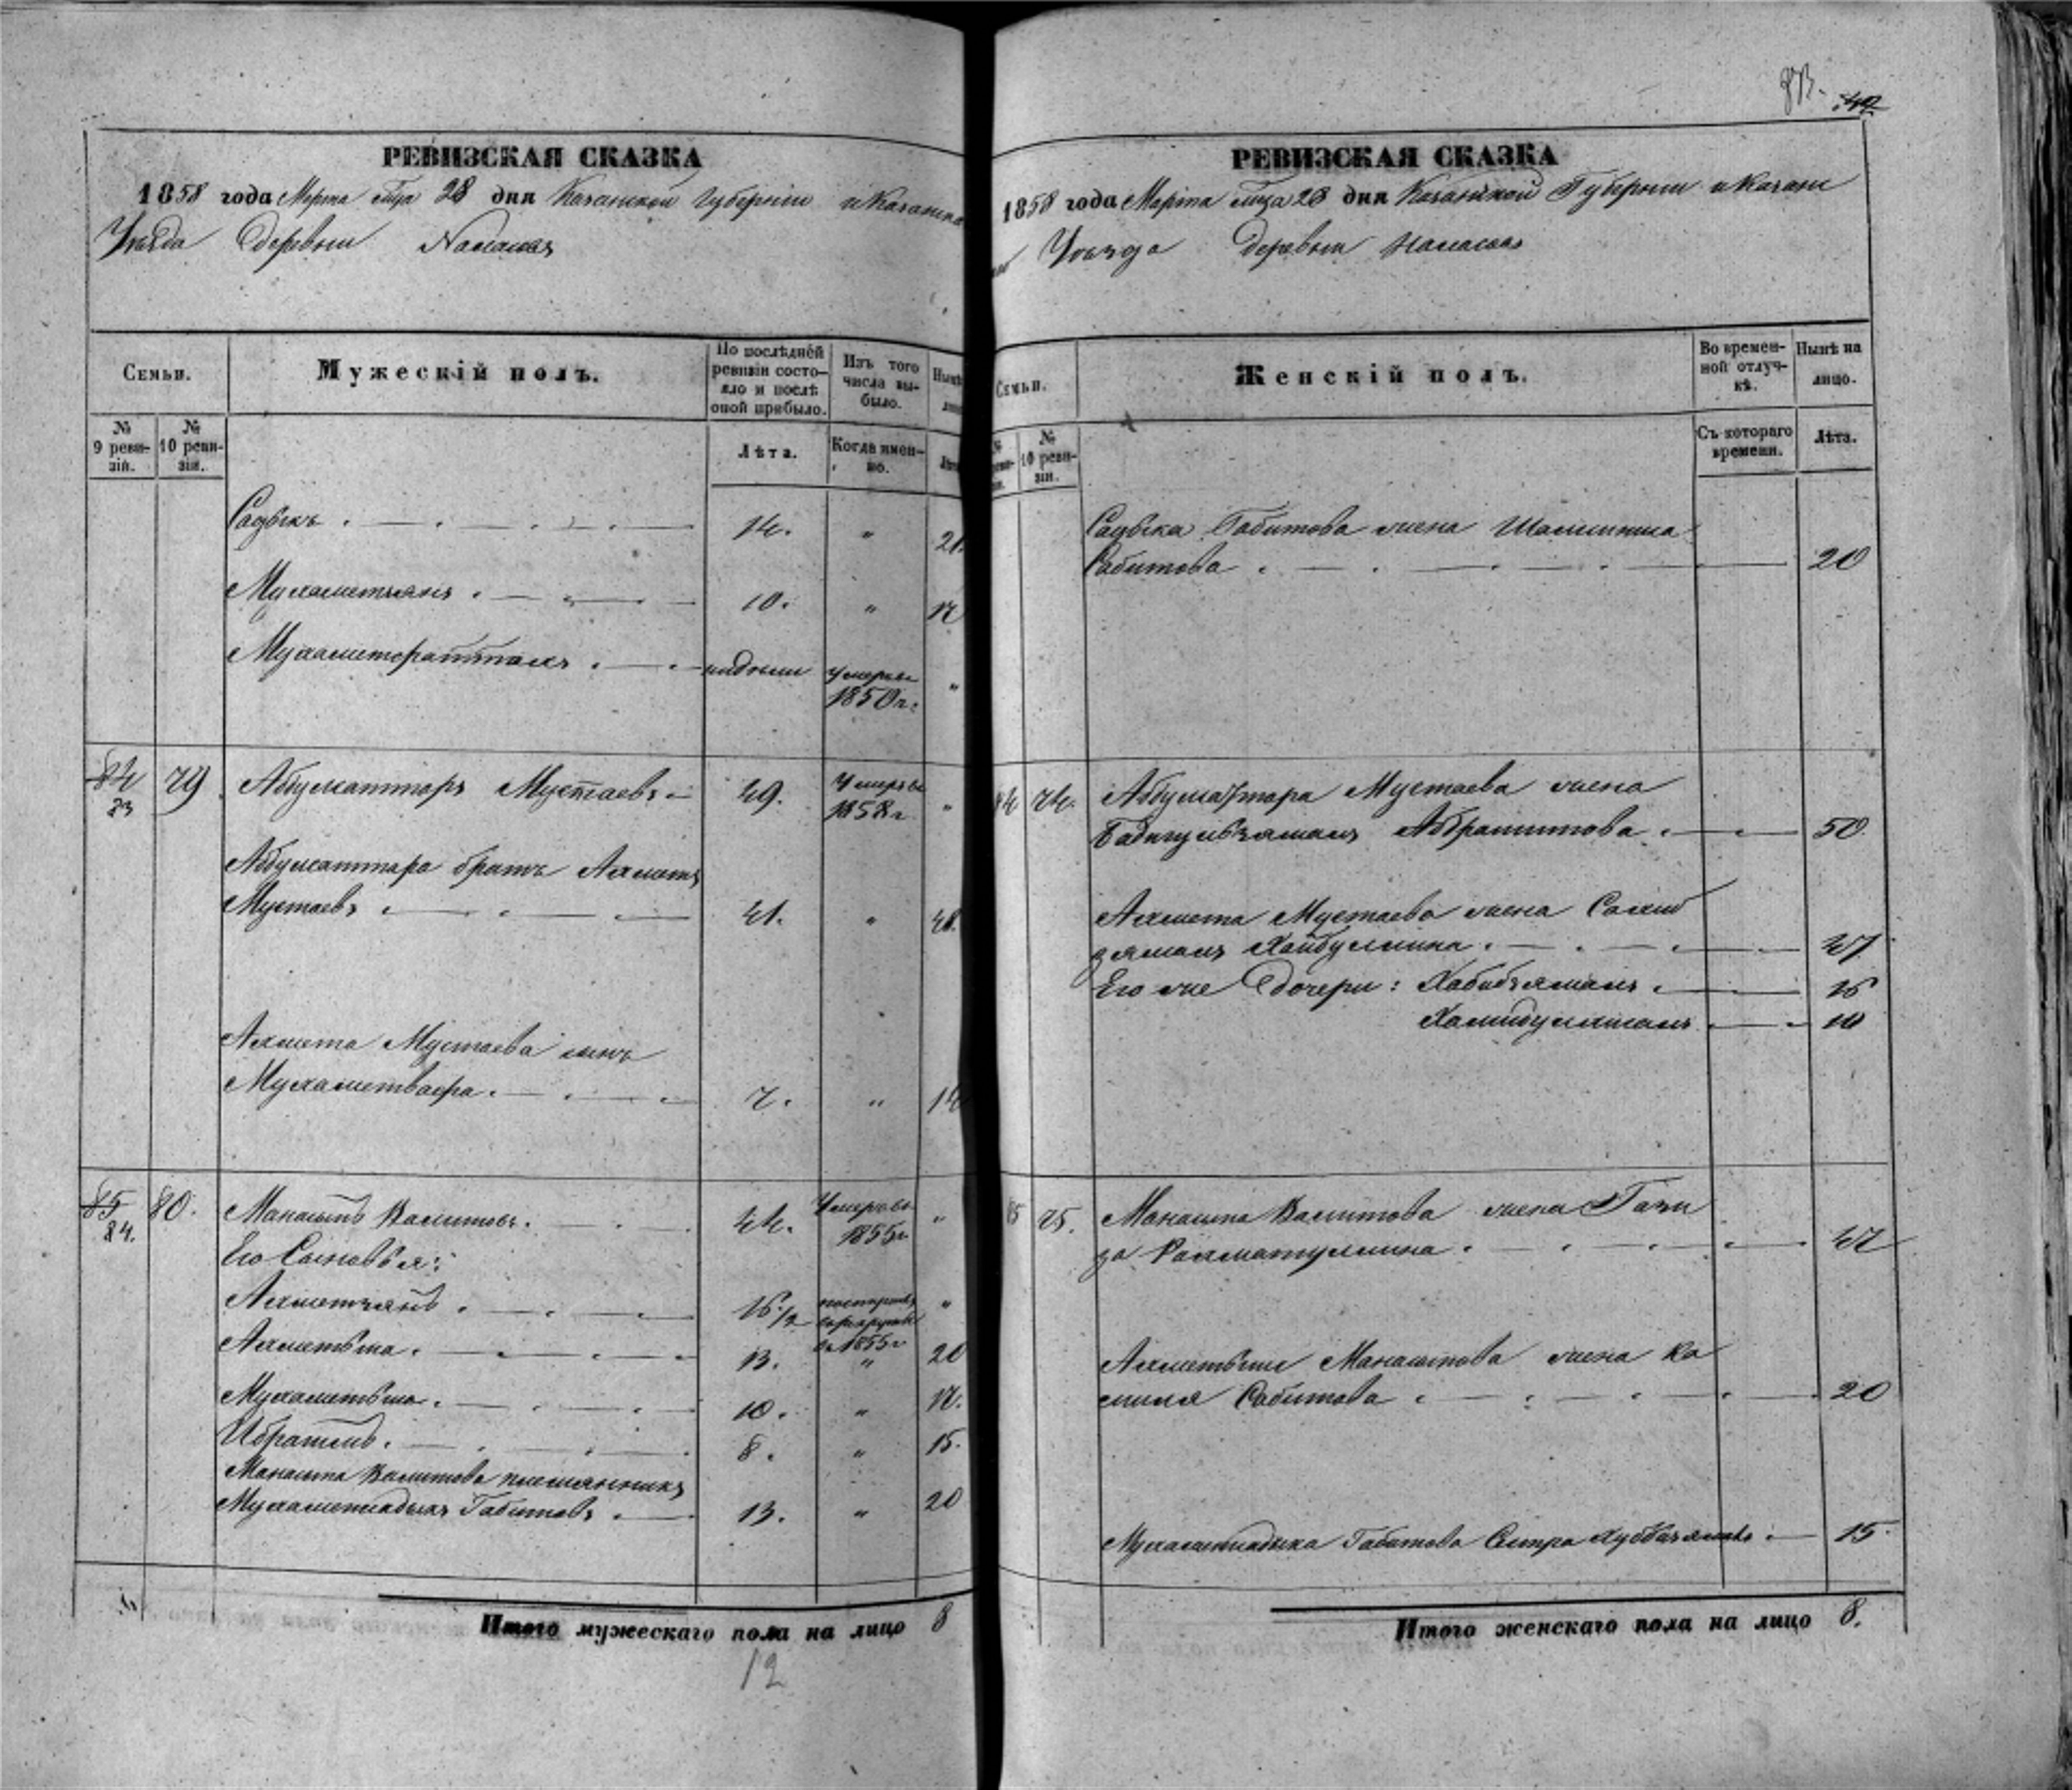 РЕВИЗСКАЯ СКАЗКА
1858 года Марта мца 28 дня Казанской Губернiи и Казанска
Уѣзда Деревни
Семьи.
Мужескiй полъ.
По послѣдней ревизiи состояло и послѣ оной прибыло.
Изъ того числа выбыло.
Нынѣ
№ 9 ревизiи.
№ 10 ревизiи.
Лѣта.
Когда именно.
Садыкъ 14. " 21
Мухаметзянъ 10. " 17
умеръ
1850 г.
84 79 Абдулсаттаръ Мустаевъ 49. умеръ "
83 1858 г.
Абдулсаттара братъ Ахметъ
Мустаевъ 41. " 48.
Ахмета Мустаева сынъ
Мухаметвафа 7. " 14
85 80. Манашъ Валитовъ 44. Умеръ "
84. 1855 г.
Его Сыновья:
Ахметзянъ 16 1/2 "
въ 1855 г.
Ахметьша 13. " 20
Мухаметьша 10. " 17.
Ибраимъ 8. " 15.
Валитова племянникъ
Мухаметсадыкъ Габитовъ 13. " 20
Итого мужескаго пола на лицо 8
12
873.
РЕВИЗСКАЯ СКАЗКА
1858 года Марта мца 28 дня Казанской Губернiи и Казанс
Уѣзда Деревни
Семьи.
Женскiй полъ.
Во временной отлучкѣ.
Нынѣ на лицо.
№ 10 ревизiи.
Съ котораго времени.
Лѣта.
Садыка Габитова жена
Сабитова 20
84 74. Абдулсаттара Мустаева жена
Абдрашитова 50.
Ахмета Мустаева жена Сахиб
зямалъ Хайбуллина 47
Его же Дочери: Хабибзямалъ 16
10
85 75. Валитова жена Гази
за Рахматуллина 47
Ахметьши жена Ка
миля Сабитова 20
Мухаметсадыка Габитова Сестра 15.
Итого женскаго пола на лицо 8.